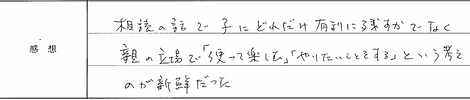 感想
相談の話で子にどれだけ有利に残すかでなく
親の立場で「使って楽しむ」「やりたいことをする」という考え
のが新鮮だった